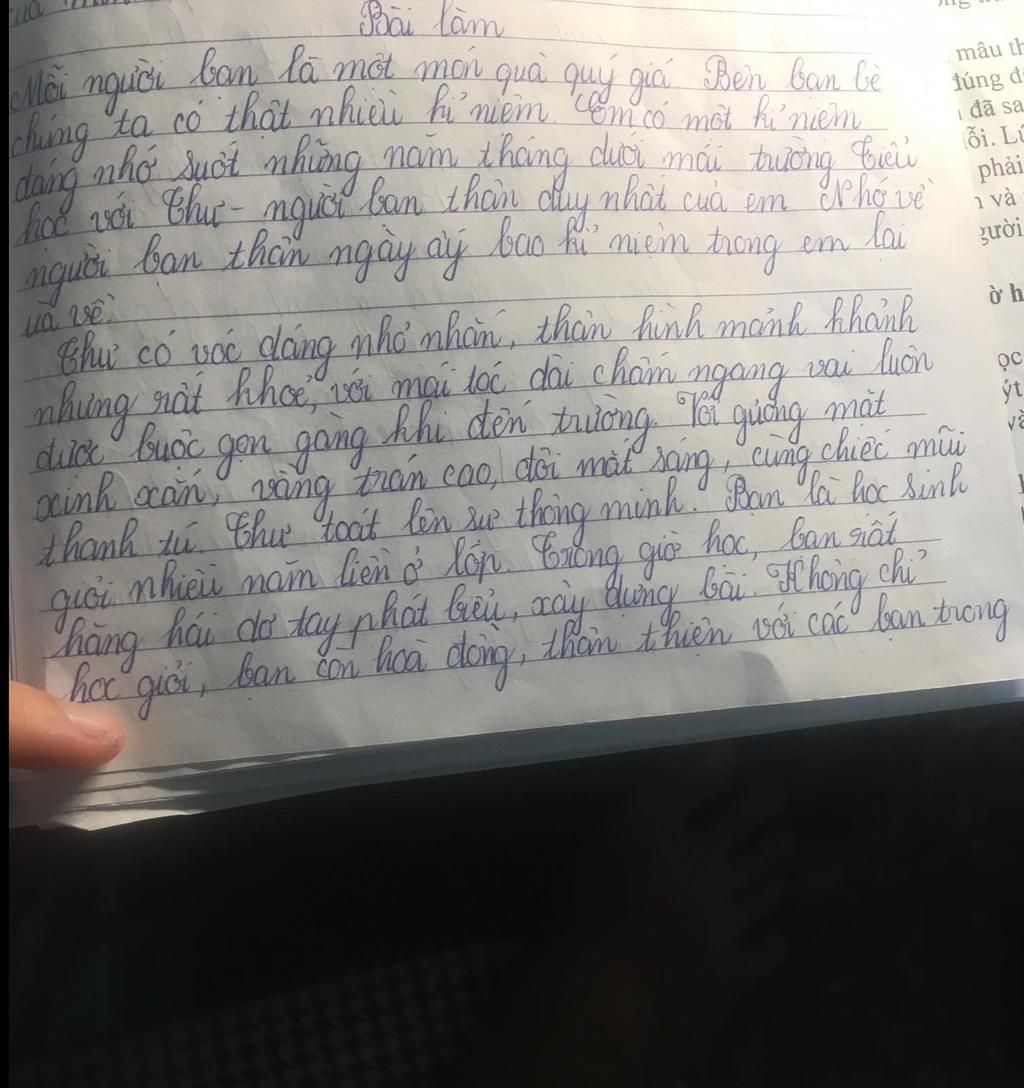 Bài làm
Mỗi người bạn là một món quà quý giá. Bên bạn bè
chúng ta có thật nhiều kỉ niệm. Em có một kỉ niệm
đáng nhớ suốt những năm tháng dưới mái trường tiểu
học với Thư - người bạn thân duy nhất của em. Nhớ về
người bạn thân ngày ấy bao kỉ niệm trong em lại
ùa về.
Thư có vóc dáng nhỏ nhắn, thân hình mảnh khảnh
nhưng rất khoẻ, với mái tóc dài chấm ngang vai luôn
được buộc gọn gàng khi đến trường. Với gương mặt
xinh xắn, vầng trán cao, đôi mắt sáng, cùng chiếc mũi
thanh tú. Thư toát lên sự thông minh. Bạn là học sinh
giỏi nhiều năm liền ở lớp. Trong giờ học, bạn rất
hăng hái dơ tay phát biểu, xây dựng bài. Không chỉ
học giỏi, bạn còn hoà đồng, thân thiện với các bạn trong
mâu th
đúng đ
đã sa
lỗi. Lú
phải
và
gười
ờ h
ọc
ýt
và